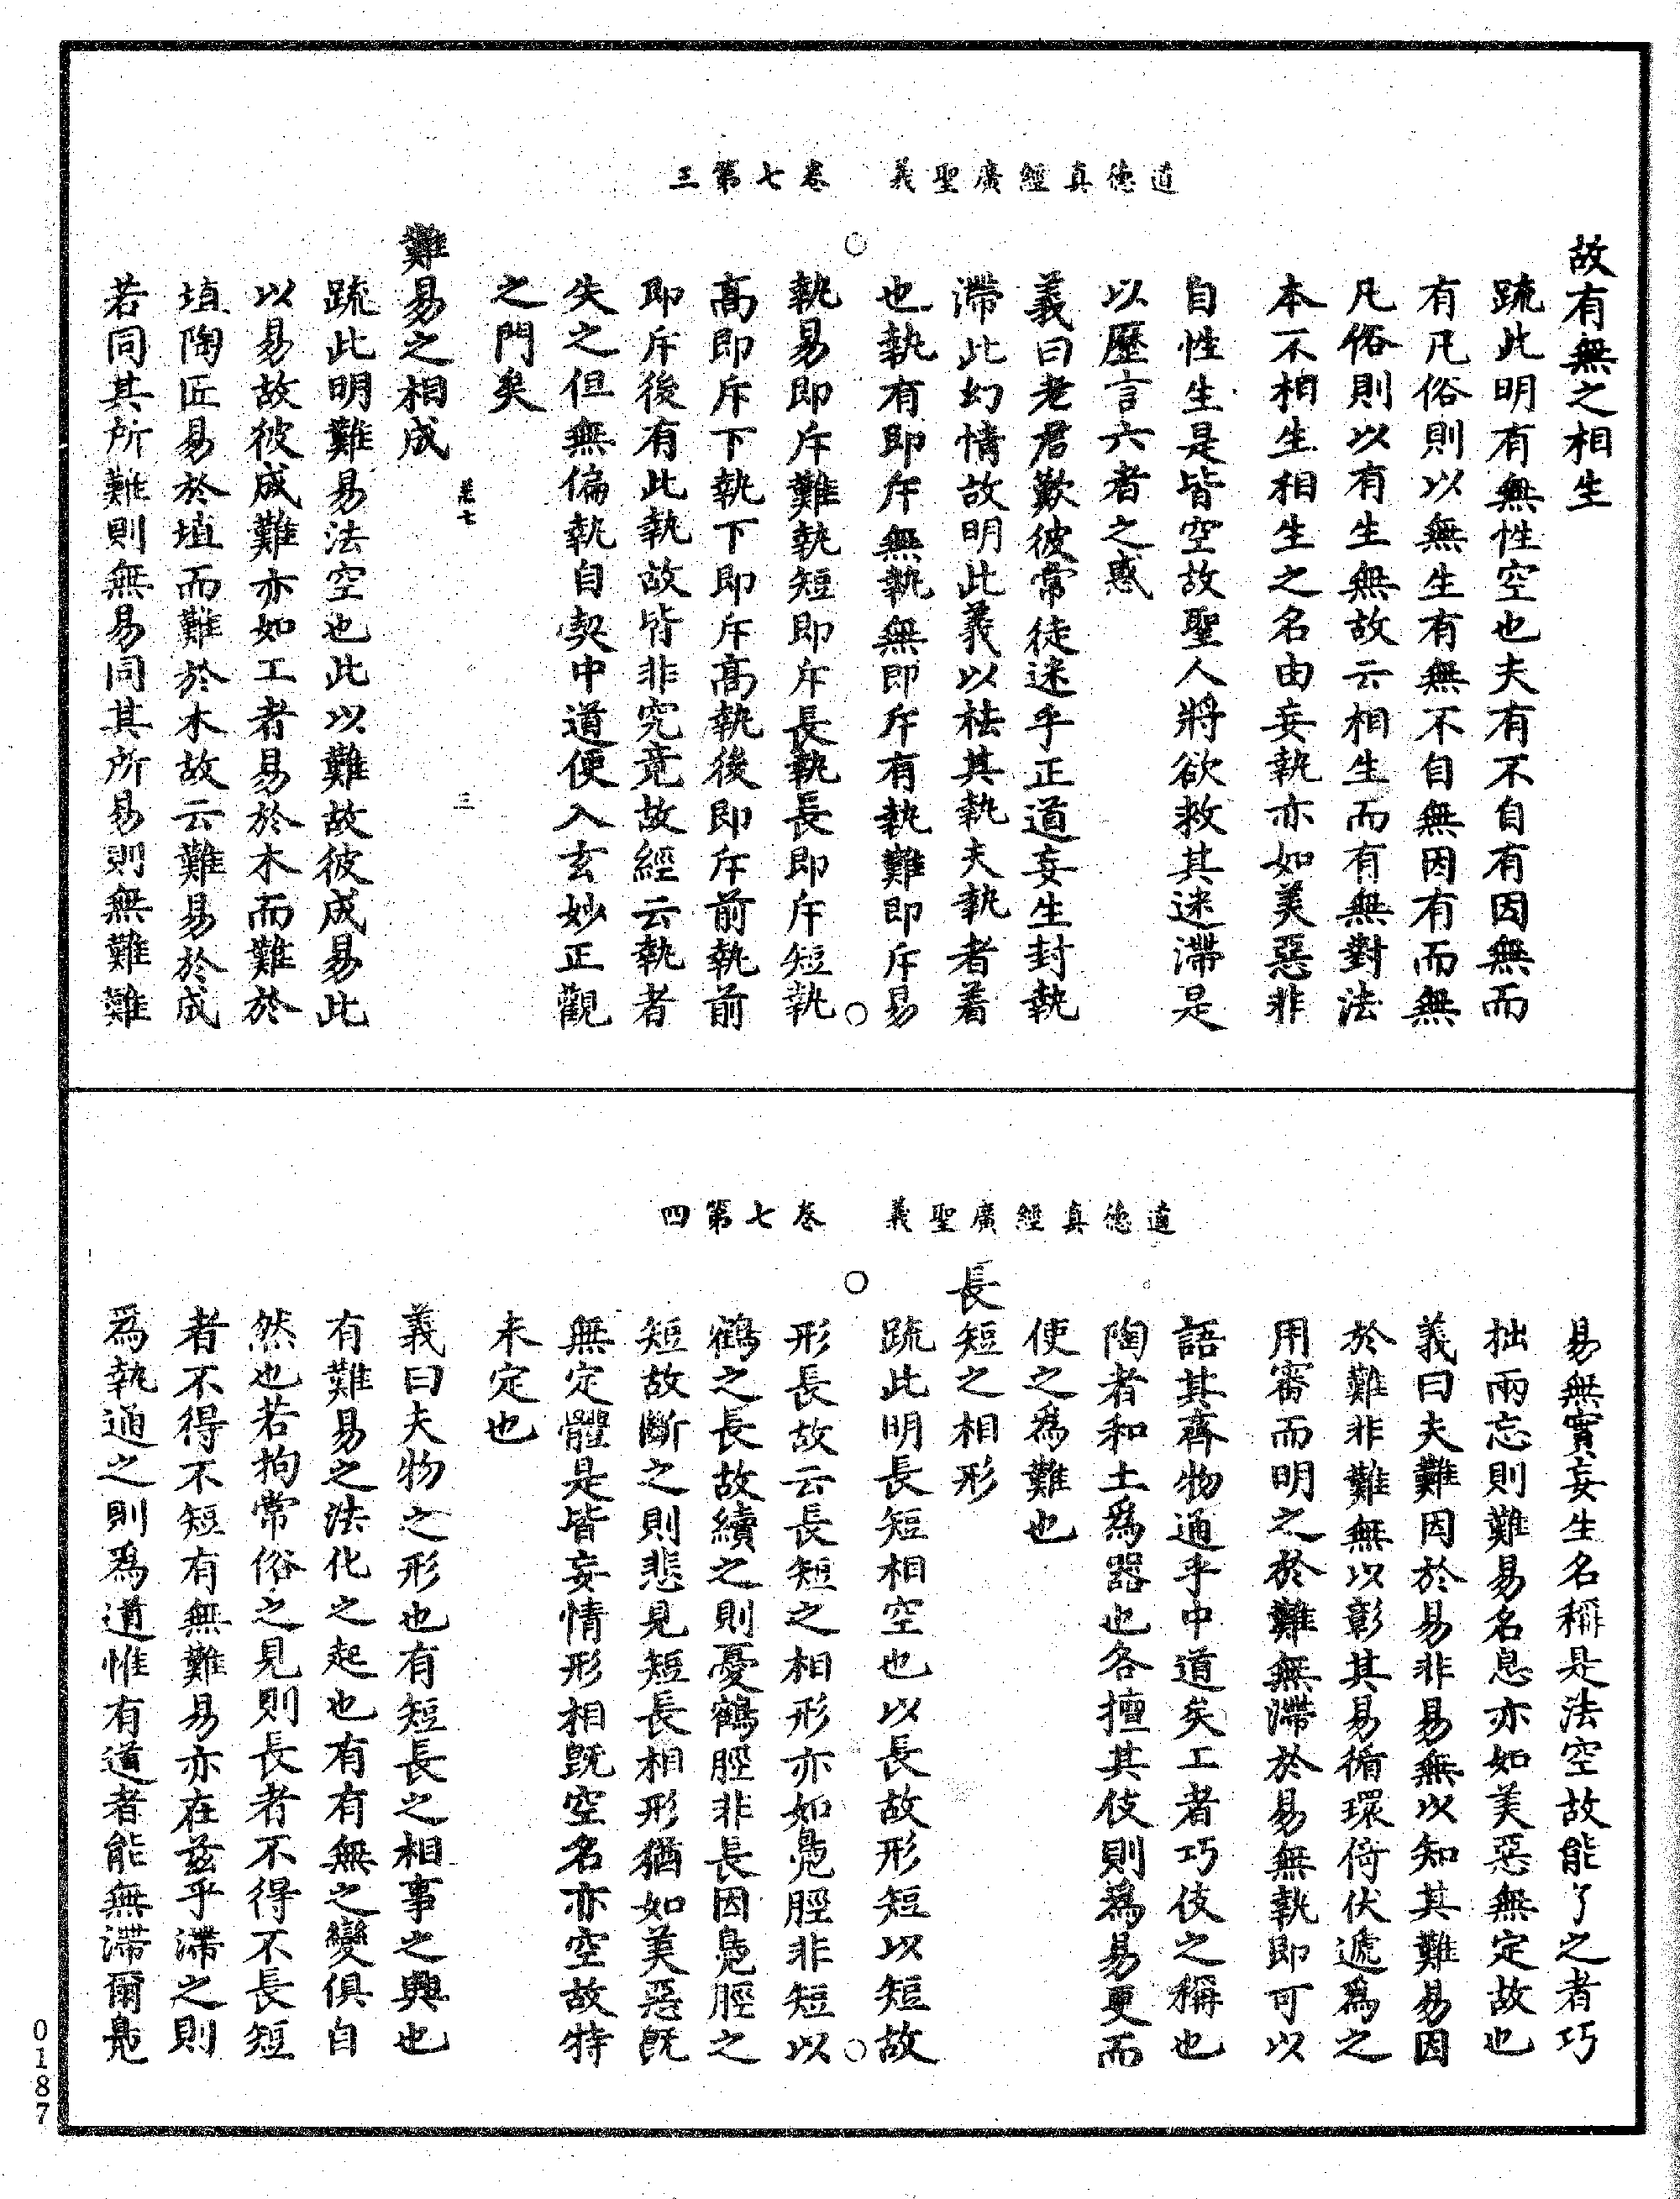 道德真經廣聖義　卷七第三
故有無之相生
疏此明有無性空也夫有不自有因無而
有凡俗則以無生有無不自無因有而無
凡俗則以有生無故云相生而有無對法
本不相生相生之名由妄執亦如美惡非
自性生是皆空故聖人將欲救其迷滯是
以歷言六者之惑
義曰老君歎彼常徒迷乎正道妄生封執
滯此幻情故明此義以袪其執夫執者着
也執有即斥無執無即斥有執難即斥易
執易即斥難執短即斥長執長即斥短執
高即斥下執下即斥高執後即斥前執前
即斥後有此執故皆非究竟故經云執者
失之但無偏執自契中道便入玄妙正觀
之門矣
卷七　三
難易之相成
疏此明難易法空也此以難故彼成易此
以易故彼成難亦如工者易於木而難於
埴陶匠易於埴而難於木故云難易於成
若同其所難則無易同其所易則無難難
道德真經廣聖義　卷七第四
易無實妄生名稱是法空故能了之者巧
拙兩忘則難易名息亦如美惡無定故也
義曰夫難因於易非易無以知其難易因
於難非難無以彰其易循環倚伏遞爲之
用審而明之於難無滯於易無執即可以
語其齊物通乎中道矣工者巧伎之稱也
陶者和土爲器也各擅其伎則爲易更而
使之爲難也
長短之相形
疏此明長短相空也以長故形短以短故
形長故云長短之相形亦如鳧脛非短以
鶴之長故續之則憂鶴脛非長因鳧脛之
短故斷之則悲見短長相形猶如美惡旣
無定體是皆妄情形相旣空名亦空故特
未定也
義曰夫物之形也有短長之相事之興也
有難易之法化之起也有有無之變俱自
然也若拘常俗之見則長者不得不長短
者不得不短有無難易亦在茲乎滯之則
爲執通之則爲道惟有道者能無滯爾鳧
0187